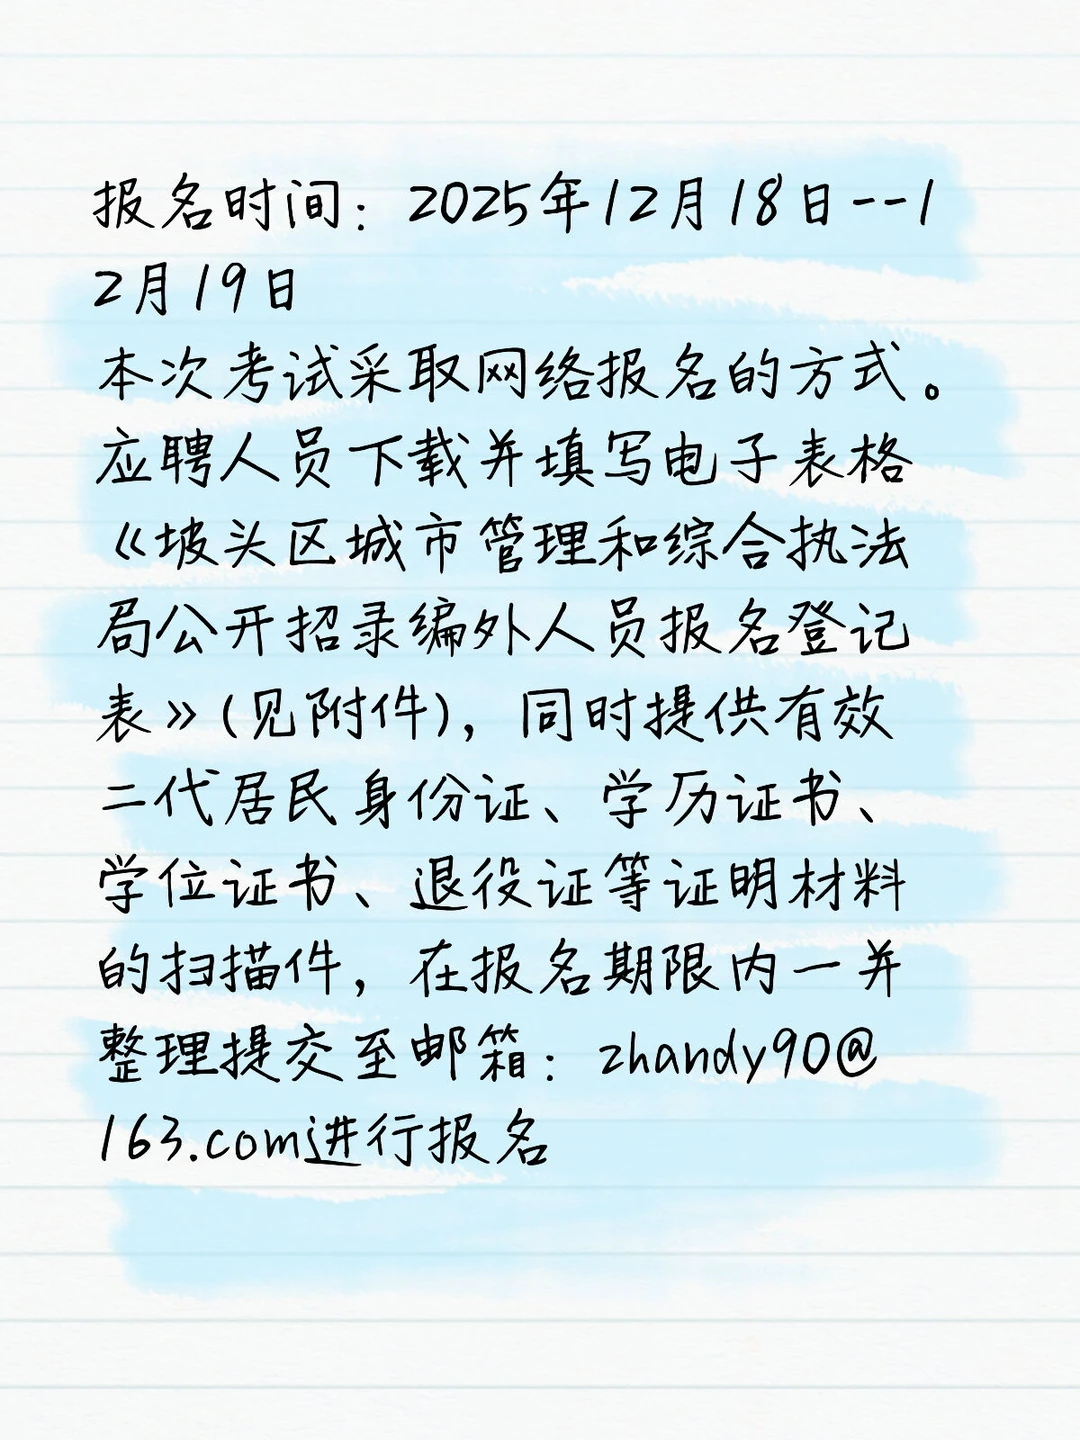 报名时间：2025年12月18日--1
2月19日
本次考试采取网络报名的方式。
应聘人员下载并填写电子表格
《坡头区城市管理和综合执法
局公开招录编外人员报名登记
表》(见附件)，同时提供有效
二代居民身份证、学历证书、
学位证书、退役证等证明材料
的扫描件，在报名期限内一并
整理提交至邮箱：zhandy90@
163.com进行报名